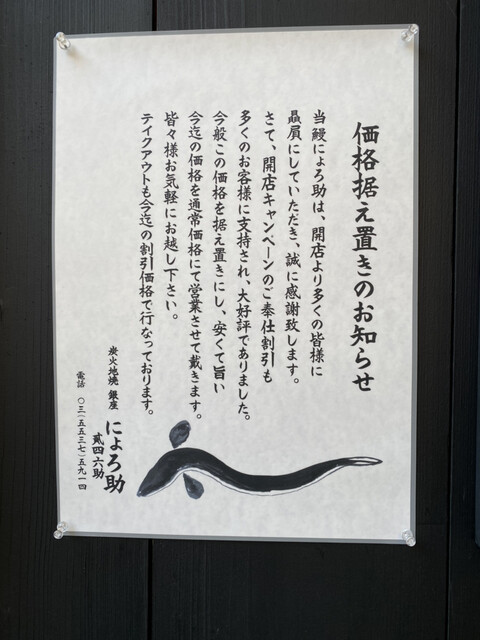 価格据え置きのお知らせ
当鰻にょろ助は、開店より多くの皆様に
贔屓にしていただき、誠に感謝致します。
さて、開店キャンペーンのご奉仕割引も
多くのお客様に支持され、大好評でありました。
今般この価格を据え置きにし、安くて旨い
今迄の価格を通常価格にて営業させて戴きます。
皆々様お気軽にお越し下さい。
テイクアウトも今迄の割引価格で行なっております。
炭火地焼 銀座 にょろ助
貳四六助
電話 〇三(五五三七)五九一四